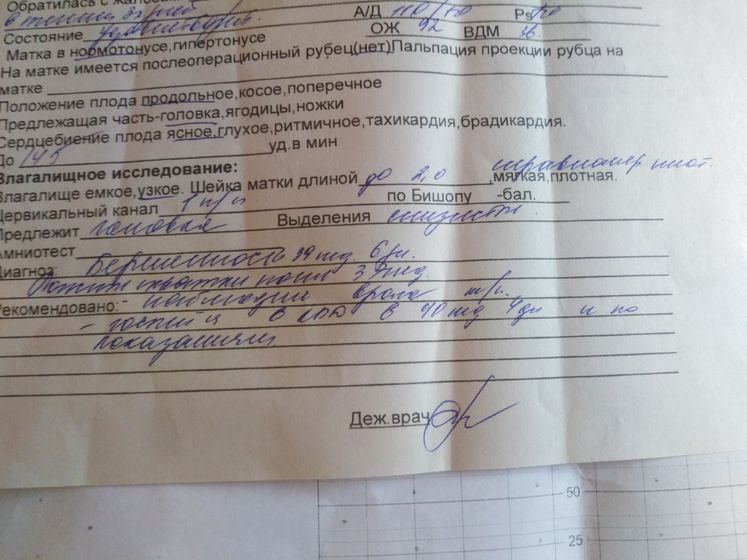 Обратилась с жалоба
в течении 3х дней
Состояние удовлетворит. А/Д 110/70 Ps
Матка в нормотонусе,гипертонусе ОЖ 92 ВДМ 36
На матке имеется послеоперационный рубец(нет)Пальпация проекции рубца на
матке
Положение плода продольное,косое,поперечное
Предлежащая часть-головка,ягодицы,ножки
Сердцебиение плода ясное,глухое,ритмичное,тахикардия,брадикардия.
До 145 уд.в мин
Влагалищное исследование:
Влагалище емкое,узкое. Шейка матки длиной до 2,0 ,мягкая,плотная.
Цервикальный канал 1 п/п по Бишопу -бал.
Предлежит головка Выделения слизистые.
Амниотест
Диагноз: Беременность 39 нед. 6 дн.
схватки после 37 нед.
Рекомендовано: - наблюдение врача ж/к.
- госпит-ция в 40 нед 4 дн и по
показаниям
Деж.врач
50
25